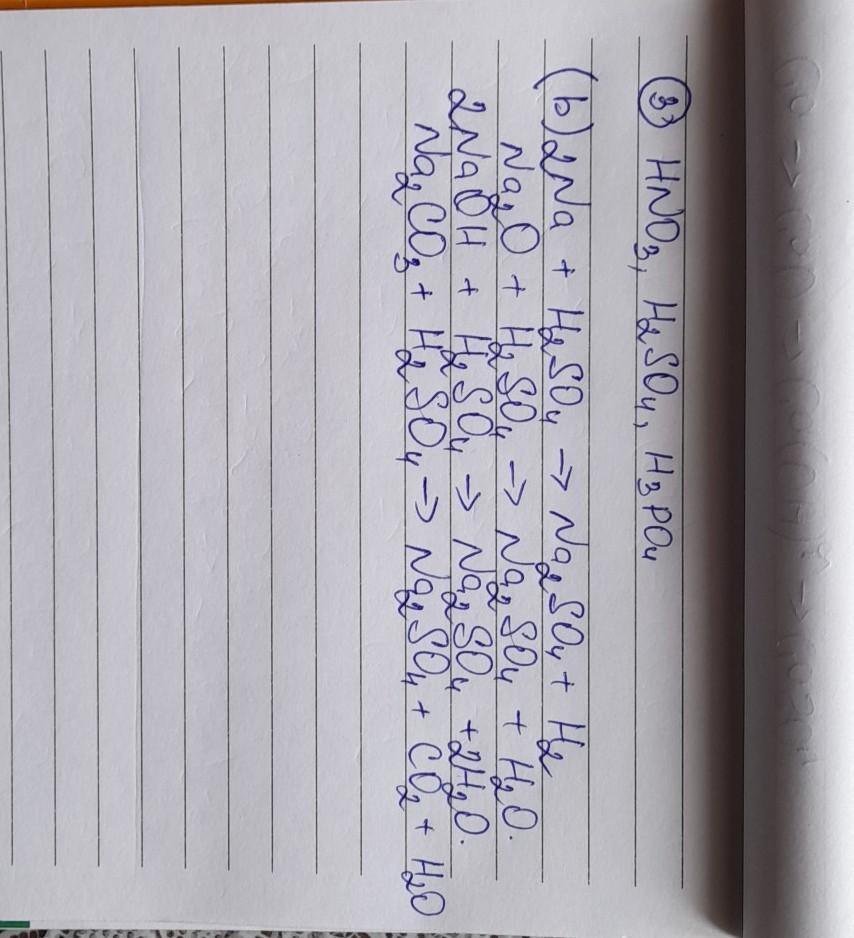 ③ HNO₃, H₂SO₄, H₃PO₄
(b) 2Na + H₂SO₄ → Na₂SO₄ + H₂
Na₂O + H₂SO₄ → Na₂SO₄ + H₂O.
2NaOH + H₂SO₄ → Na₂SO₄ + 2H₂O.
Na₂CO₃ + H₂SO₄ → Na₂SO₄ + CO₂ + H₂O